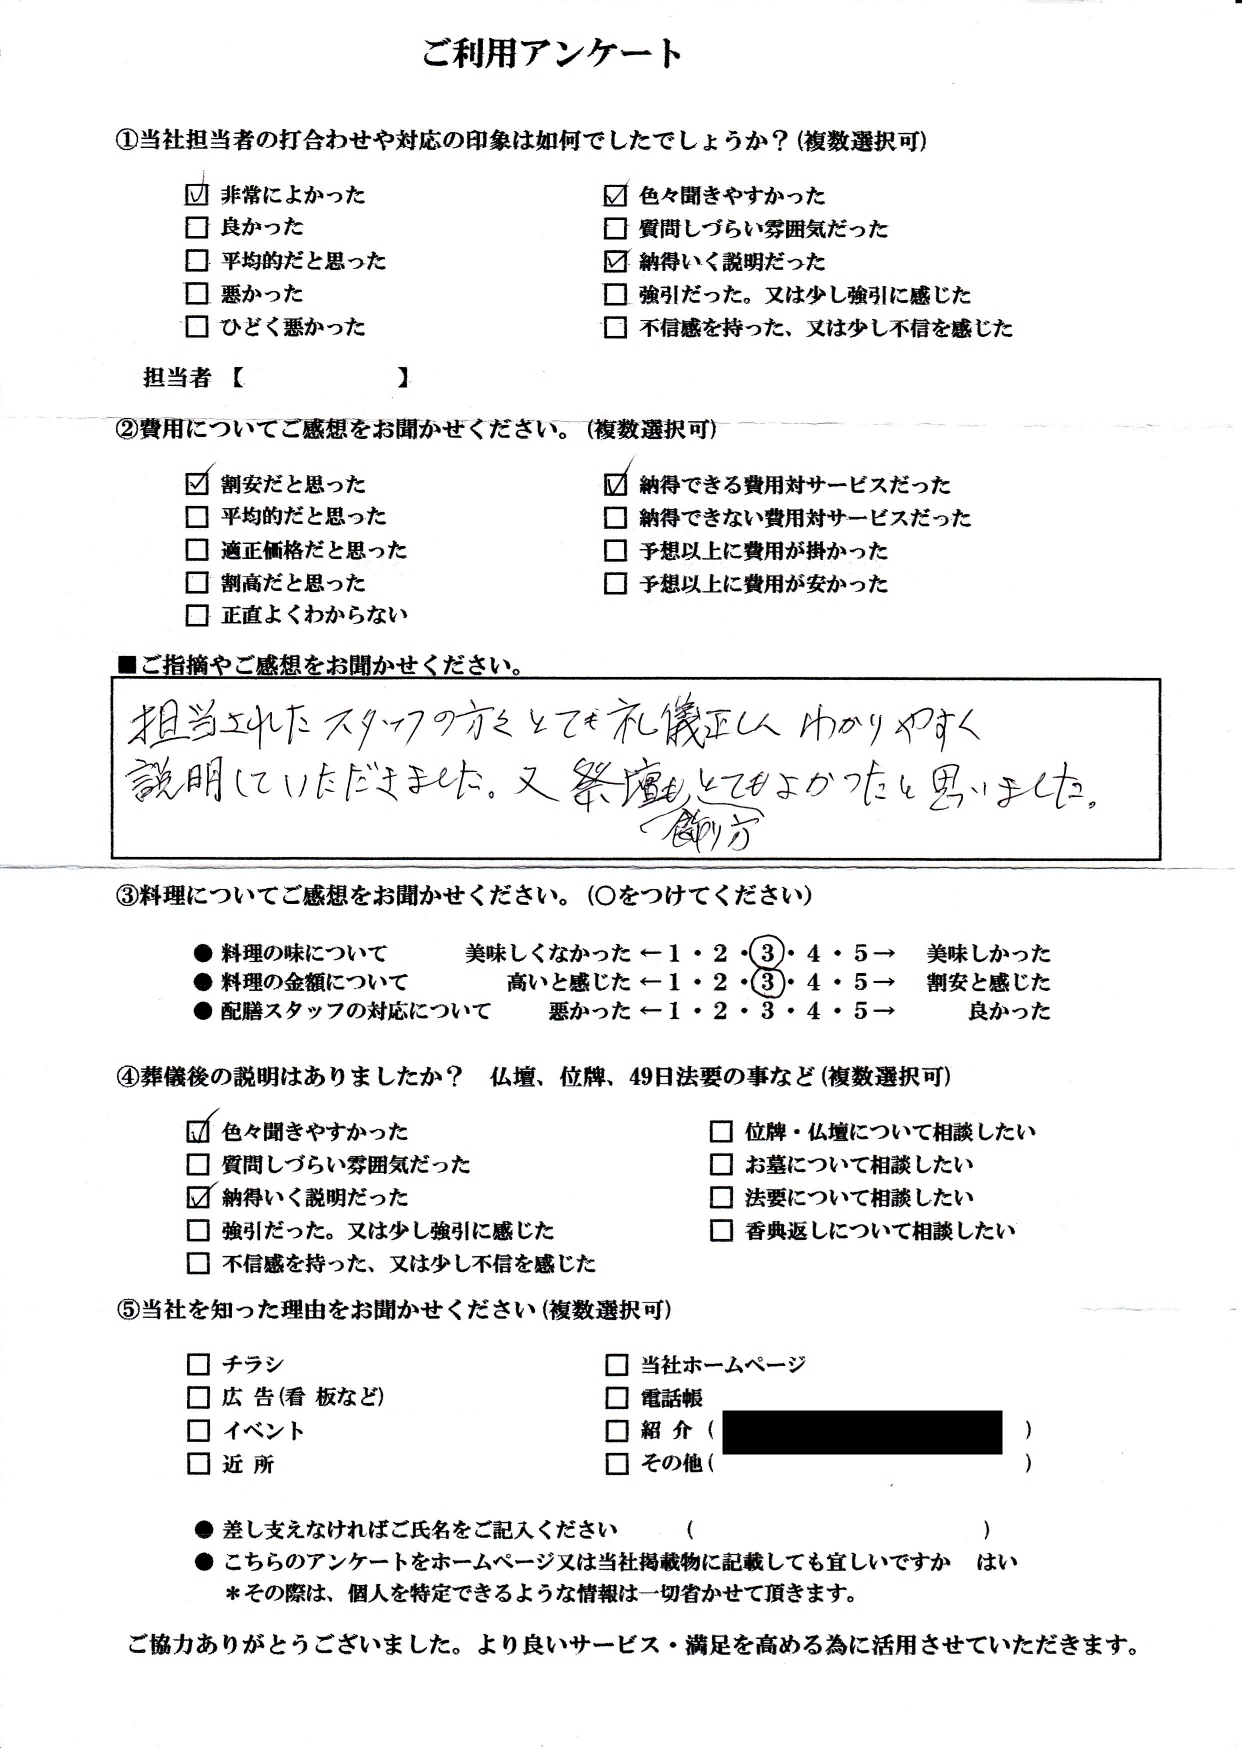 ご利用アンケート
①当社担当者の打合わせや対応の印象は如何でしたでしょうか？(複数選択可)
☑ 非常によかった ☑ 色々聞きやすかった
□ 良かった □ 質問しづらい雰囲気だった
□ 平均的だと思った ☑ 納得いく説明だった
□ 悪かった □ 強引だった。又は少し強引に感じた
□ ひどく悪かった □ 不信感を持った、又は少し不信を感じた
担当者 【 】
②費用についてご感想をお聞かせください。(複数選択可)
☑ 割安だと思った ☑ 納得できる費用対サービスだった
□ 平均的だと思った □ 納得できない費用対サービスだった
□ 適正価格だと思った □ 予想以上に費用が掛かった
□ 割高だと思った □ 予想以上に費用が安かった
□ 正直よくわからない
■ご指摘やご感想をお聞かせください。
担当されたスタッフの方々とても礼儀正しく わかりやすく
説明していただきました。又 祭壇もとてもよかったと思いました。
飾り方
③料理についてご感想をお聞かせください。(○をつけてください)
● 料理の味について 美味しくなかった ←1・2・③・4・5→ 美味しかった
● 料理の金額について 高いと感じた ←1・2・③・4・5→ 割安と感じた
● 配膳スタッフの対応について 悪かった ←1・2・3・4・5→ 良かった
④葬儀後の説明はありましたか？ 仏壇、位牌、49日法要の事など(複数選択可)
☑ 色々聞きやすかった □ 位牌・仏壇について相談したい
□ 質問しづらい雰囲気だった □ お墓について相談したい
☑ 納得いく説明だった □ 法要について相談したい
□ 強引だった。又は少し強引に感じた □ 香典返しについて相談したい
□ 不信感を持った、又は少し不信を感じた
⑤当社を知った理由をお聞かせください(複数選択可)
□ チラシ □ 当社ホームページ
□ 広 告(看 板など) □ 電話帳
□ イベント □ 紹 介 ( )
□ 近 所 □ その他( )
● 差し支えなければご氏名をご記入ください ( )
● こちらのアンケートをホームページ又は当社掲載物に記載しても宜しいですか はい
＊その際は、個人を特定できるような情報は一切省かせて頂きます。
ご協力ありがとうございました。より良いサービス・満足を高める為に活用させていただきます。